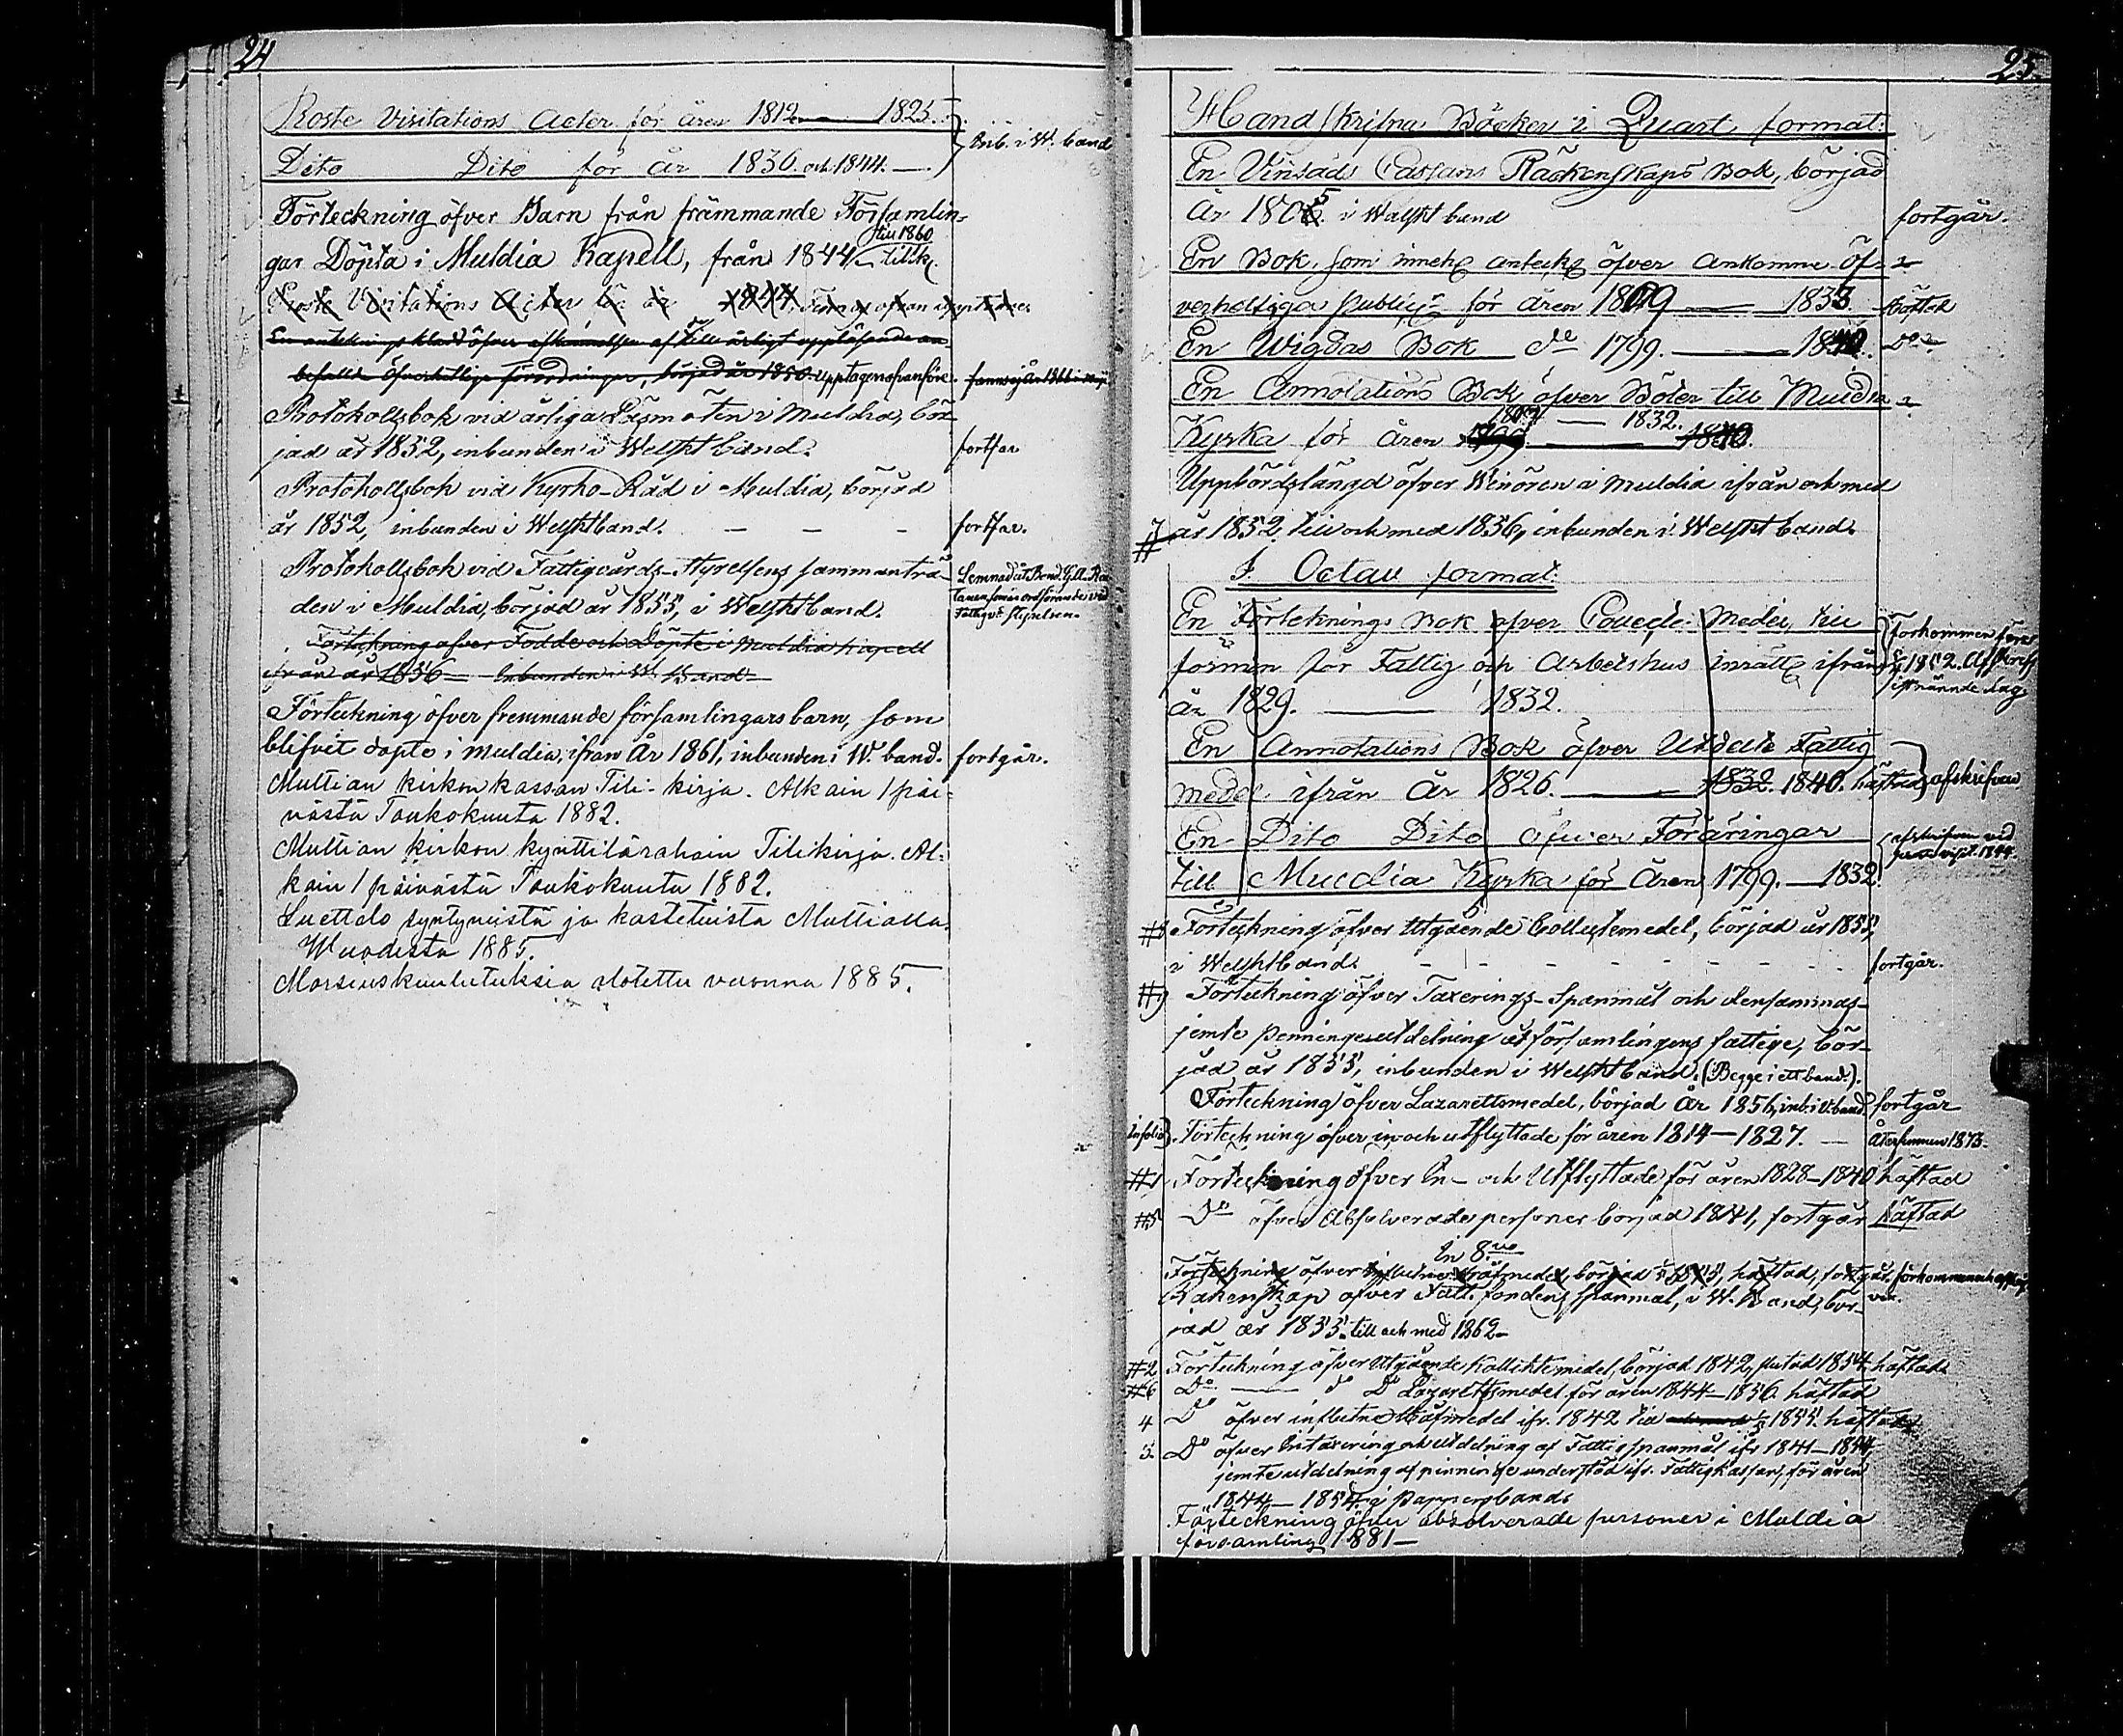 24
Proste Visitations Acter för åren 1812 — 1825.
Inb. i W. band
Dito Dito för år 1836. och 1844. —
Förteckning öfver Barn från främmande Församlin-
gar Döpta i Muldia Kapell, från 1844 till 1860 tillk.
Proste Visitations Acter för år 1844, ofvan
En antecknings kladd öfver af årligt uppläsande an-
befallde öfverhetlige förordningar, börjad år 1850. upptagen ofvanföre.
Protokollsbok vid årliga Läsmöten i Muldia, bör-
jad år 1852, inbunden i Welskt band.
fortfar
Protokollsbok vid Kyrko-Råd i Muldia, börjad
år 1852, inbunden i Welsktband. - - -
fortfar.
Protokollsbok vid Fattigvårds-Styrelsens sammanträ-
den i Muldia, börjad år 1855, i Welsktband.
Lemnad åt Bond. ordförande vid Fattigv: styrelsen.
Förteckning öfver Födde och Döpte i Muldia Kapell
ifrån år 1856 — Inbunden i W. Band —
Förteckning öfver fremmande församlingars barn, som
blifvit döpte i Muldia, ifrån År 1861, inbunden i W. band.
fortgår.
Multian kirkon kassan Tili-kirja. Alkain 1 päi-
västä Toukokuuta 1882.
Multian kirkon kynttilärahain Tilikirja. Al-
kain 1 päivästä Toukokuuta 1882.
Luettelo syntyneistä ja kastetuista Multialla.
Wuodesta 1885.
Morsiuskuulutuksia alotettu vuonna 1885.
25.
Handskrifna Böcker i Quart format:
En Vinsäds Cassans Räkenskaps Bok, börjad
År 1805. i Welskt band
fortgår.
En Bok, som inneh. anteckn. öfver ankomne Öf-
verhetliga Public. för åren 1809 — 1833.
häftad
En Wigdas Bok do 1799. — 1840.
Do
En Annotations Bok öfver Böter till Muldia
Kyrka för åren 1802 — 1832.
Uppbördslängd öfver Winören i Muldia ifrån och med
# 7 år 1832 till och med 1856, inbunden i Welskt band.
I Octav format:
En Förtecknings Bok öfver Collecte-Medel, till
förmån för Fattig och Arbetshus inrättn. ifrån
År 1829. — 1832.
Förkommen före 1852.
En Annotations Bok öfver Utdelte Fattig
medel ifrån År 1826. — 1832. 1840. häftad
afskrifven
En Dito Dito öfver Föräringar
till Muldia Kyrka för Åren 1799. — 1832.
afskrifven vid 1844.
#3 Förteckning öfver Utgående Collectemedel, börjad år 1855,
i Welsktband. - - - - - - - - -
fortgår.
Förteckning öfver Taxerings-Spanmål och densammas
jemte penningeutdelning åt församlingens fattige, bör-
jad år 1855, inbunden i Welsktband. (Begge i ett band.).
Förteckning öfver Lazarettsmedel, börjad År 1856, inb. i W. band.
fortgår
Infolio Förteckning öfver in och utflyttade för åren 1814—1827. —
Återfunnen 1873.
#1 Förteckning öfver In- och Utflyttade för åren 1828—1840
häftad
#5 Do öfver Absolverade personer börjad 1841, fortgår
häftad
In 8:vo
Förteckning öfver influtne Stafmedel, börjad år 1855, häftad, fortgår.
Räkenskap öfver Fatt. fondens Spanmål, i W. Band, bör-
jad år 1855. till och med 1862—
#2 Förteckning öfver Utgående Kollektemedel, börjad 1842, slutad 1854
häftad
#6 Do — do Do Lazarettsmedel för åren 1844—1856. häftad
4 Do öfver influtne Stafmedel ifr. 1842 till 1855. häftad
3. Do öfver Intaxering och utdelning af Fattigspanmål ifr 1841—1854,
jemte utdelning af penninge understöd ifr. Fattigkassan, för åren
1844—1854. i Pappersband.
Förteckning öfver absolverade personer i Muldia
församling 1881—